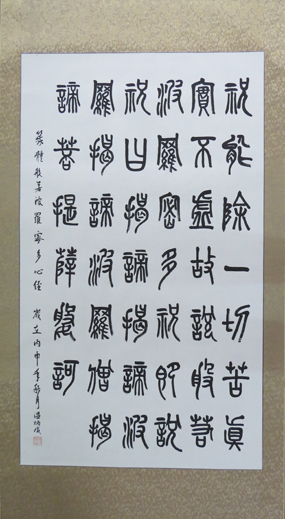 祝能除一切苦真
實不虛故說般若
波羅密多祝即說
祝曰揭諦揭諦波
羅揭諦波羅僧揭
諦菩提薩婆訶
般若波羅密多心經 歲在丙申年秋月